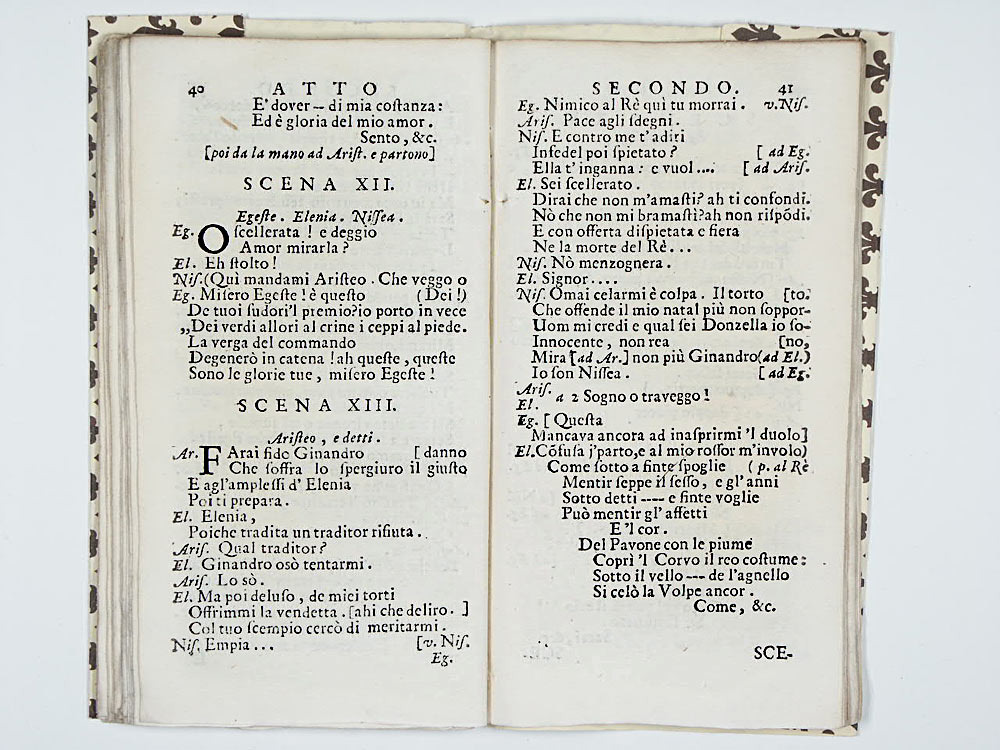 40 ATTO
E' dover -- di mia coſtanza:
Ed è gloria del mio amor.
Sento, &c.
[poi da la mano ad Ariſt. e partono]
SCENA XII.
Egeſte. Elenia. Niſſea.
Eg. O ſcellerata ! e deggio
Amor mirarla ?
El. Eh ſtolto !
Niſ.(Qui mandami Ariſteo. Che veggo o
Eg. Miſero Egeſte ! è queſto ( Dei !)
De tuoi ſudori'l premio?io porto in vece
„Dei verdi allori al crine i ceppi al piede.
La verga del commando
Degenerò in catena ! ah queſte, queſte
Sono le glorie tue, miſero Egeſte !
SCENA XIII.
Ariſteo, e detti.
Ar. FArai fido Ginandro [ danno
Che ſoffra lo ſpergiuro il giuſto
E agl'ampleſſi d' Elenia
Poi ti prepara.
El. Elenia,
Poiche tradita un traditor rifiuta.
Ariſ. Qual traditor?
El. Ginandro osò tentarmi.
Ariſ. Lo sò.
El. Ma poi deluſo, de miei torti
Offrimmi la vendetta. [ahi che deliro. ]
Col tuo ſcempio cercò di meritarmi.
Niſ. Empia ... [v. Niſ.
Eg.
SECONDO. 41
Eg. Nimico al Rè quì tu morrai. v.Niſ.
Ariſ. Pace agli ſdegni.
Niſ. E contro me t'aditi
Infedel poi ſpietato ? [ ad Eg.
Ella t' inganna : e vuol .... [ ad Ariſ.
El. Sei ſcellerato.
Dirai che non m'amaſti? ah ti confondi.
Nò che non mi bramaſti?ah non riſpōdi.
E con offerta diſpietata e fiera
Ne la morte del Rè...
Niſ. Nò menzognera.
El. Signor....
Niſ. Omai celarmi è colpa. Il torto [to.
Che offende il mio natal più non ſoppor-
Uom mi credi e qual ſei Donzella io ſo-
Innocente, non rea [no,
Mira [ad Ar.] non più Ginandro(ad El.)
Io ſon Niſſea. [ ad Eg.
Ariſ.
El. a 2 Sogno o traveggo !
Eg. [ Queſta
Mancava ancora ad inaſprirmi 'l duolo]
El.Cōfuſa j'parto,e al mio roſſor m'involo)
Come ſotto a finte ſpoglie ( p. al Rè
Mentir ſeppe il ſeſſo, e gl' anni
Sotto detti ---- e finte voglie
Può mentir gl' affetti
E 'l cor.
Del Pavone con le piume
Coprì 'l Corvo il reo coſtume :
Sotto il vello --- de l'agnello
Si celò la Volpe ancor.
Come, &c.
SCE-